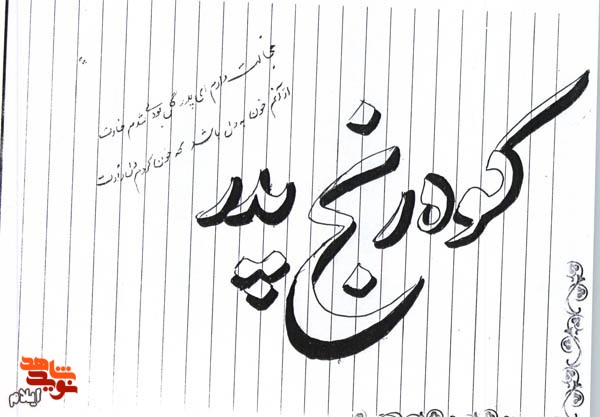 خجالت دارم ای پدر گل بودی شدم خارت
از آنم خون به دل باشد که خون کردم دل زارت
کوه رنج پدر
نوید شاهد
ایلام